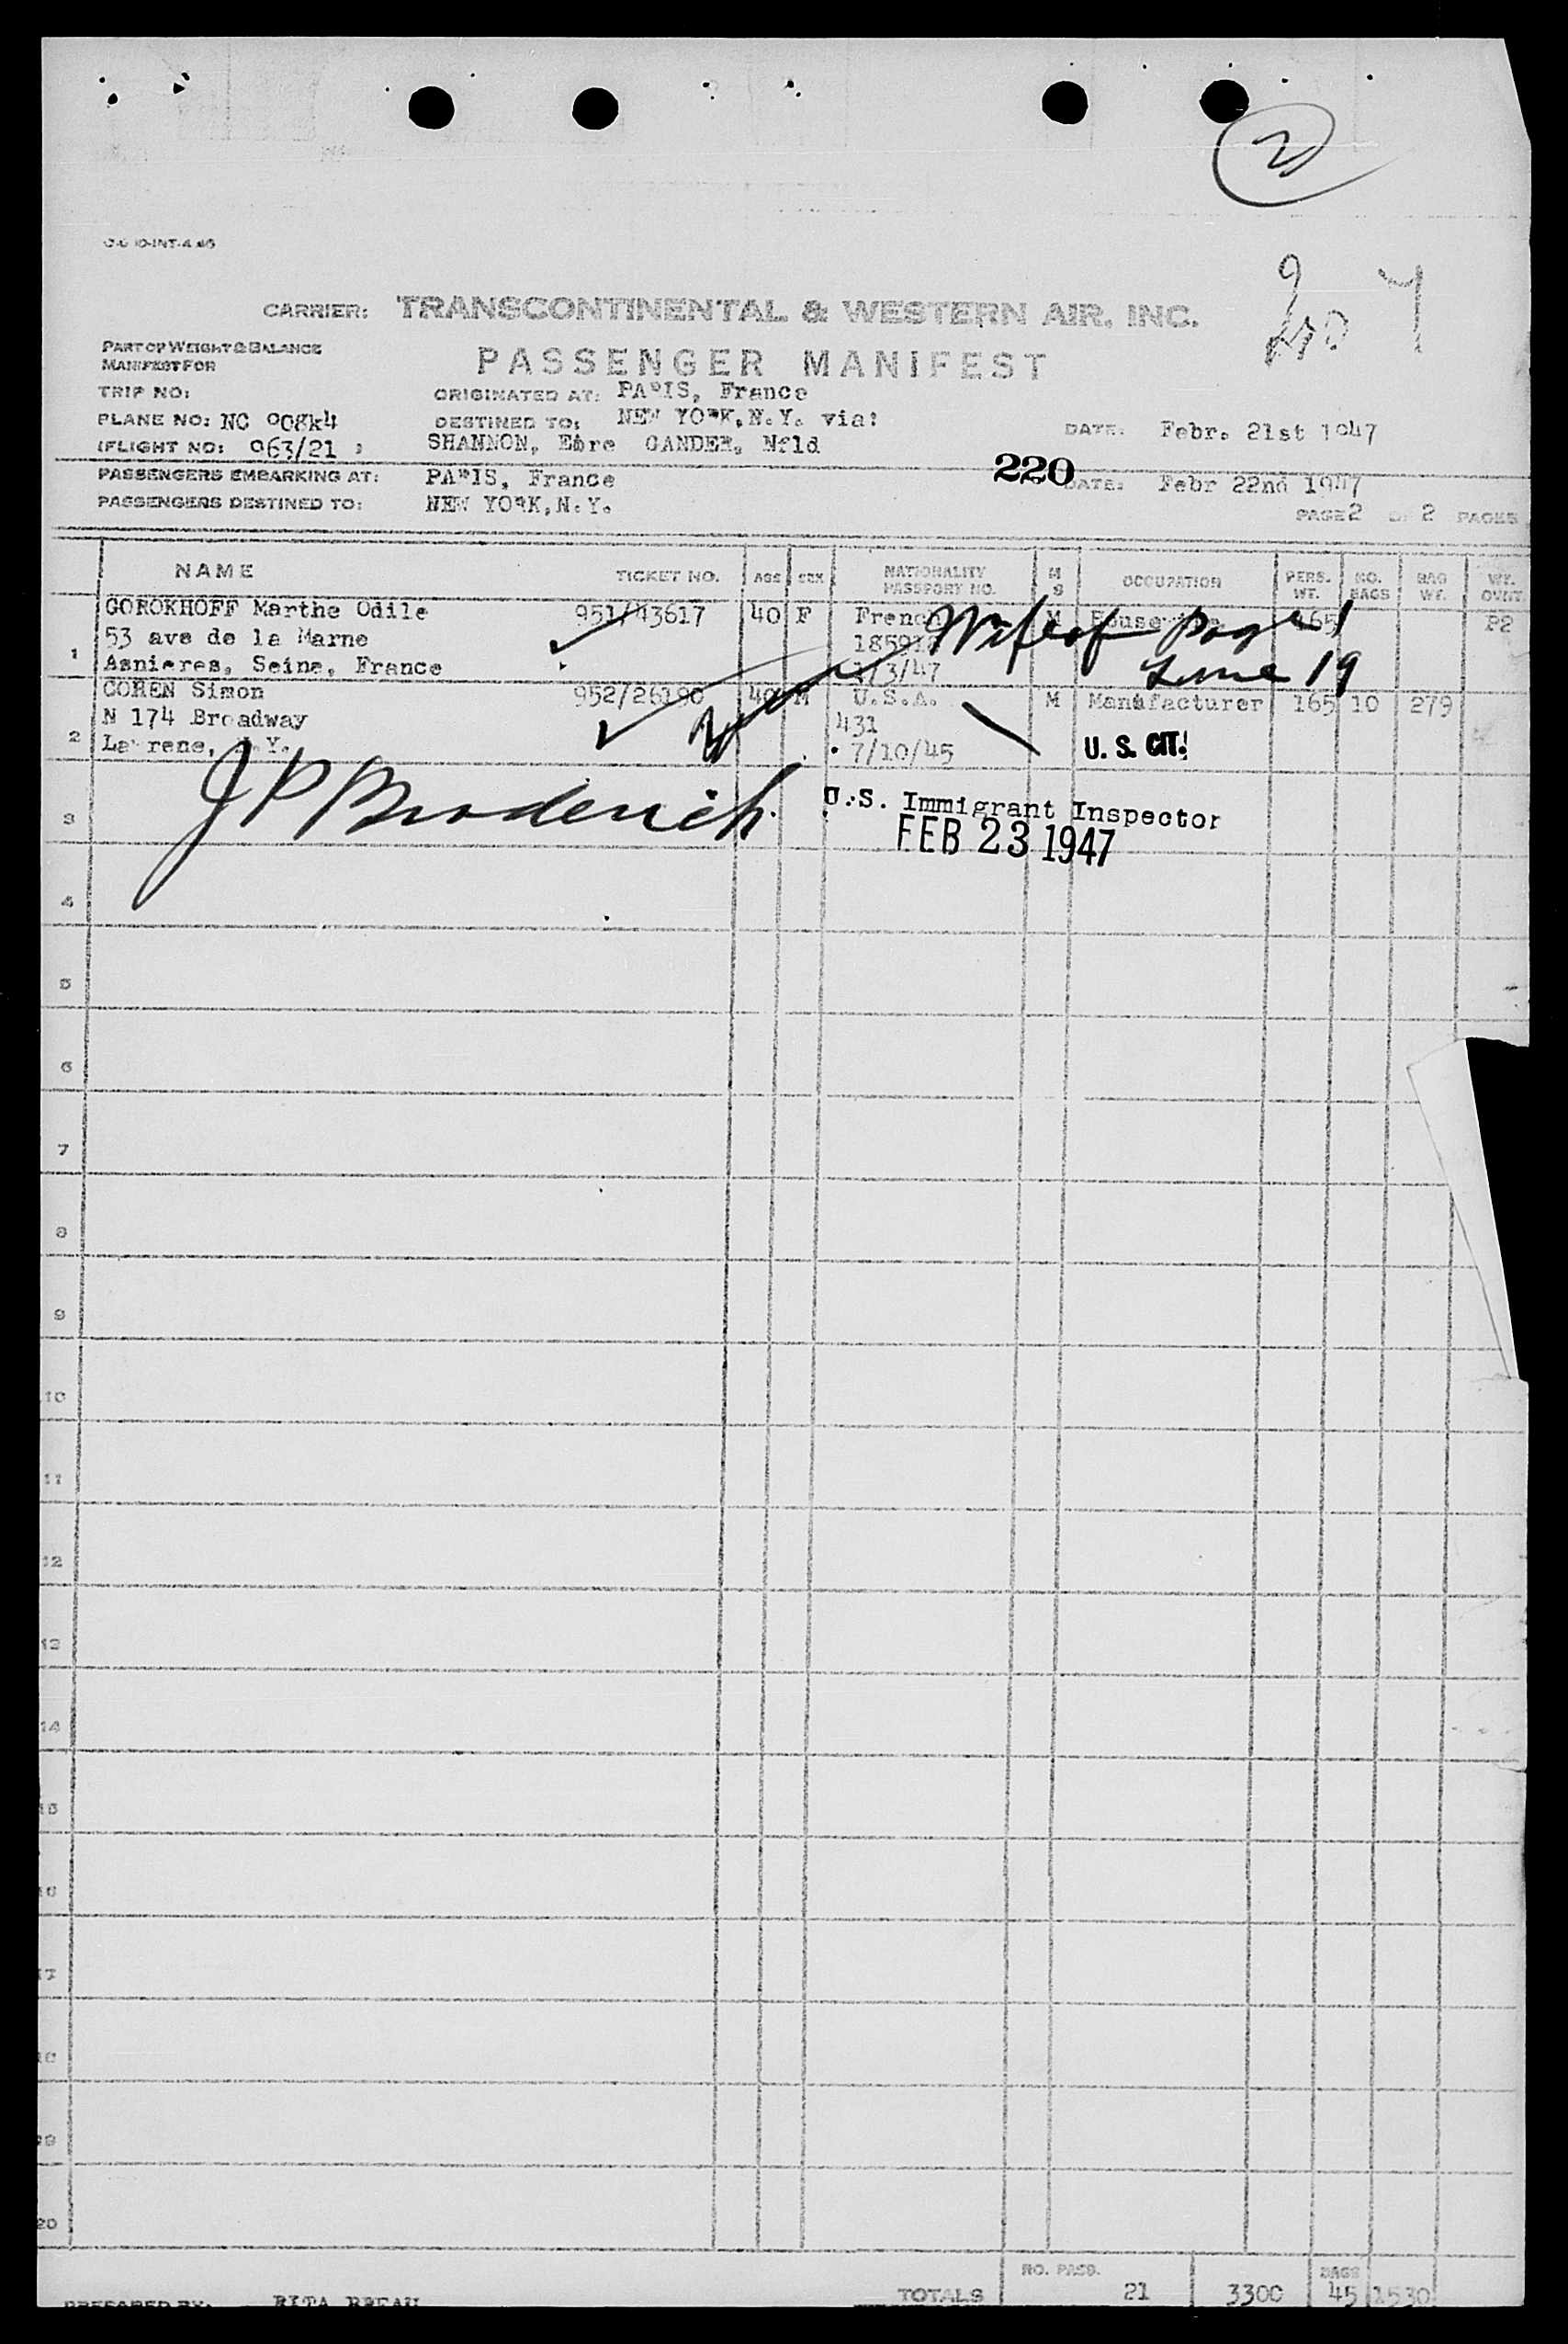 2
CARRIER: TRANSCONTINENTAL & WESTERN AIR, INC.
PART OF WEIGHT & BALANCE
MANIFEST FOR
PASSENGER MANIFEST
TRIP NO:
ORIGINATED AT: PARIS, France
PLANE NO: NC 90814
DESTINED TO: NEW YORK, N.Y. via:
DATE: Febr. 21st 1947
(FLIGHT NO: 963/21 )
SHANNON, Eire GANDER, Nfld
220
PASSENGERS EMBARKING AT: PARIS, France
DATE: Febr 22nd 1947
PASSENGERS DESTINED TO: NEW YORK, N.Y.
PAGE 2 OF 2 PAGES
NAME TICKET NO. AGE SEX NATIONALITY PASSPORT NO. M S OCCUPATION PERS. WT. NO. BAGS BAG WT. WT. OVNT.
1 GOROKHOFF Marthe Odile 951/43617 40 F French M 165 P2
53 ave de la Marne
Asnieres, Seine, France /3/47
Wife of Page 1
Line 19
2 COHEN Simon 952/26190 40 M U.S.A. M Manufacturer 165 10 279
N 174 Broadway 431
7/10/45
U. S. CIT.
J P Broderick
U.S. Immigrant Inspector
FEB 23 1947
3
4
5
6
7
8
9
10
11
12
13
14
15
16
17
18
19
20
NO. PASS. BAGS
TOTALS 21 3300 45 1530
PREPARED BY: RITA